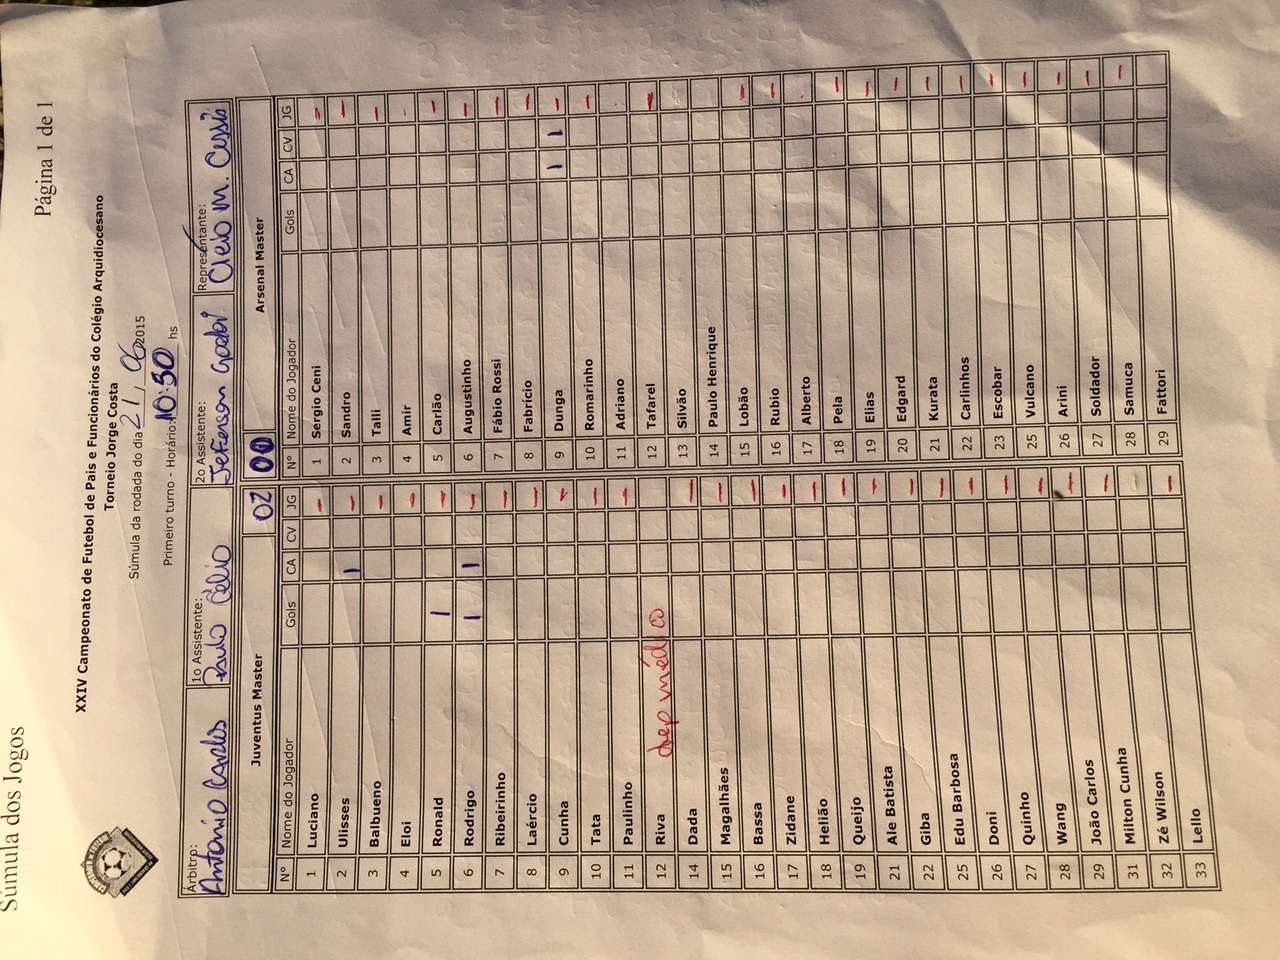 Súmula dos Jogos Página 1 de 1
XXIV Campeonato de Futebol de Pais e Funcionários do Colégio Arquidiocesano
Torneio Jorge Costa
Súmula da rodada do dia 21/06/2015
Primeiro turno - Horário: 10:30 hs
Árbitro: 1o Assistente: 2o Assistente: Representante:
Antonio Carlos Paulo Célio Jeferson Cleio M.
Juventus Master 02 00 Arsenal Master
Nº Nome do Jogador Gols CA CV JG Nº Nome do Jogador Gols CA CV JG
1 Luciano - 1 Sergio Ceni -
2 Ulisses 1 - 2 Sandro -
3 Balbueno - 3 Talli -
4 Eloi - 4 Amir
5 Ronald 1 - 5 Carlão -
6 Rodrigo 1 1 - 6 Augustinho -
7 Ribeirinho - 7 Fábio Rossi -
8 Laércio - 8 Fabrício -
9 Cunha - 9 Dunga 1 1 -
10 Tata - 10 Romarinho -
11 Paulinho - 11 Adriano
12 Riva dep médico 12 Tafarel -
14 Dada - 13 Silvão
15 Magalhães - 14 Paulo Henrique
16 Bassa - 15 Lobão -
17 Zidane - 16 Rubio -
18 Helião - 17 Alberto
19 Queijo - 18 Pela -
21 Ale Batista - 19 Elias -
22 Giba - 20 Edgard -
25 Edu Barbosa - 21 Kurata -
26 Doni - 22 Carlinhos -
27 Quinho - 23 Escobar -
28 Wang - 25 Vulcano -
29 João Carlos - 26 Arini -
31 Milton Cunha 27 Soldador -
32 Zé Wilson - 28 Samuca -
33 Lello 29 Fattori